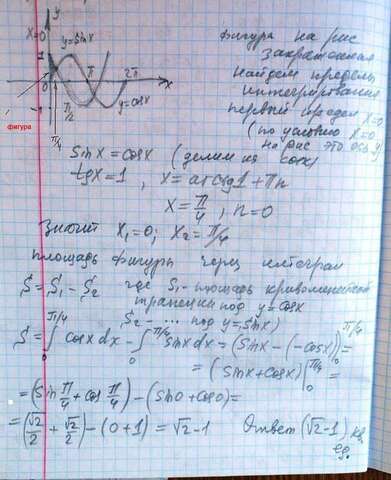 y
X=0
y=sinx
1
0
π
2π
x
-1
π/2
y=cosx
π/4
фигура
фигура на рис
закрашенная
найдем пределы
интегрирования
первый предел x=0
(по условию x=0
на рис это ось y)
sinx = cosx (делим на cosx)
tgx=1, x=arctg1+πn
x=π/4; n=0
Значит x₁=0; x₂=π/4
площадь фигуры через интеграл
S=S₁-S₂ где S₁-площадь криволинейной
трапеции под y=cosx
S₂-... под y=sinx)
S=∫₀^π/4 cosxdx-∫₀^π/4 sinxdx=(sinx-(-cosx))|₀^π/4=
=(sinx+cosx)|₀^π/4=
=(sin π/4+cos π/4)-(sin0+cos0)=
=(√2/2+√2/2)-(0+1)=√2-1 Ответ (√2-1) кв.
ед.